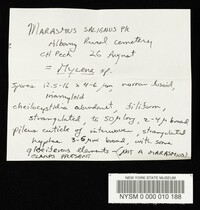 MARASMIUS SALIGNUS Pk
Albany Rural Cemetery
CH Peck 26 August
= Mycena sp.
Spores 12.5-16 x 4-6 µm narrow fusoid,
inamyloid
cheilocystidia abundant, filiform,
strangulated, to 50 µm long, 2-4 µm broad
pileus cuticle of interwoven, strangulated
hyphae 3-6 µm broad, with some
gloeiferous elements - (NOT A MARASMIUS)
CLAMPS PRESENT
NEW YORK STATE MUSEUM
NYSM 0 000 010 188